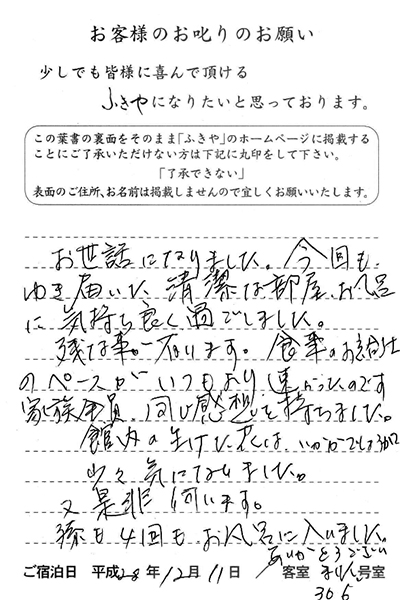 お客様のお叱りのお願い
少しでも皆様に喜んで頂ける
ふきやになりたいと思っております。
この葉書の裏面をそのまま「ふきや」のホームページに掲載する
ことにご了承いただけない方は下記に丸印をして下さい。
「了承できない」
表面のご住所、お名前は掲載しませんので宜しくお願いいたします。
お世話になりました。今回も
ゆき届いた、清潔な部屋、お風呂
に気持ち良く過ごしました。
残念な事が有ります。食事のお給仕
のペースがいつもより速かったのです
家族全員、同じ感想を持ちました。
館内の生けた花は、いかがでしょうか
少々気になりました。
又是非伺います。
孫も4回もお風呂に入いました。
ありがとうござい
ました。
ご宿泊日 平成28年12月11日 客室 号室
306